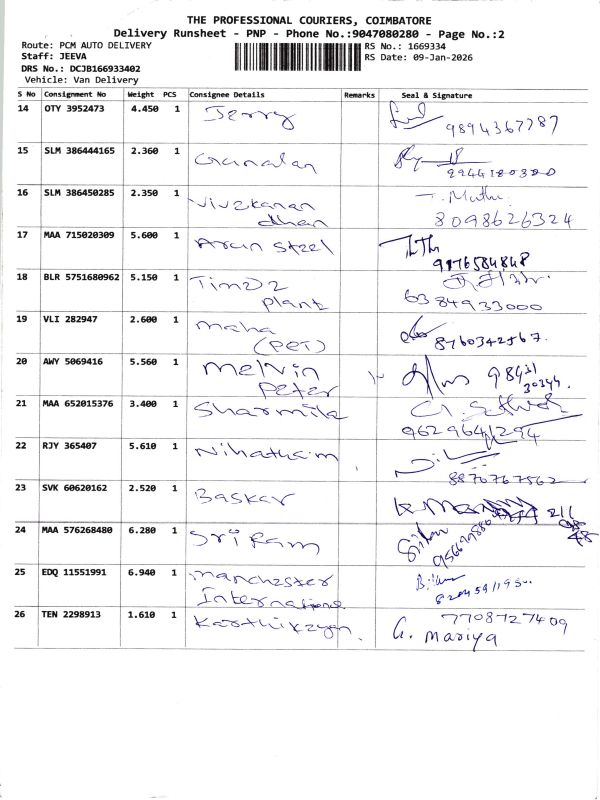 THE PROFESSIONAL COURIERS, COIMBATORE
Delivery Runsheet - PNP - Phone No.:9047080280 - Page No.:2
Route: PCM AUTO DELIVERY
Staff: JEEVA
DRS No.: DCJB166933402
Vehicle: Van Delivery
RS No.: 1669334
RS Date: 09-Jan-2026
S No Consignment No Weight PCS Consignee Details Remarks Seal & Signature
14 OTY 3952473 4.450 1 Jerry 9894367787
15 SLM 386444165 2.360 1 Gunalan
16 SLM 386450285 2.350 1 Vivekanan T. Muthu
dhan 8098626324
17 MAA 715020309 5.600 1 Arun Steel
9976584848
18 BLR 5751680962 5.150 1 Tim22
plant 6384933000
19 VLI 282947 2.600 1 maha
(PET) 8760342567.
20 AWY 5069416 5.560 1 Melvin 98431
Peter 30344.
21 MAA 652015376 3.400 1 Sharmila
9629641294
22 RJY 365407 5.610 1 Nihathsim
8870767562
23 SVK 60620162 2.520 1 Baskar
24 MAA 576268480 6.280 1 Sri Ram
25 EDQ 11551991 6.940 1 Manchester
International
26 TEN 2298913 1.610 1 Karthikeyan 7708727409
G. Mariya